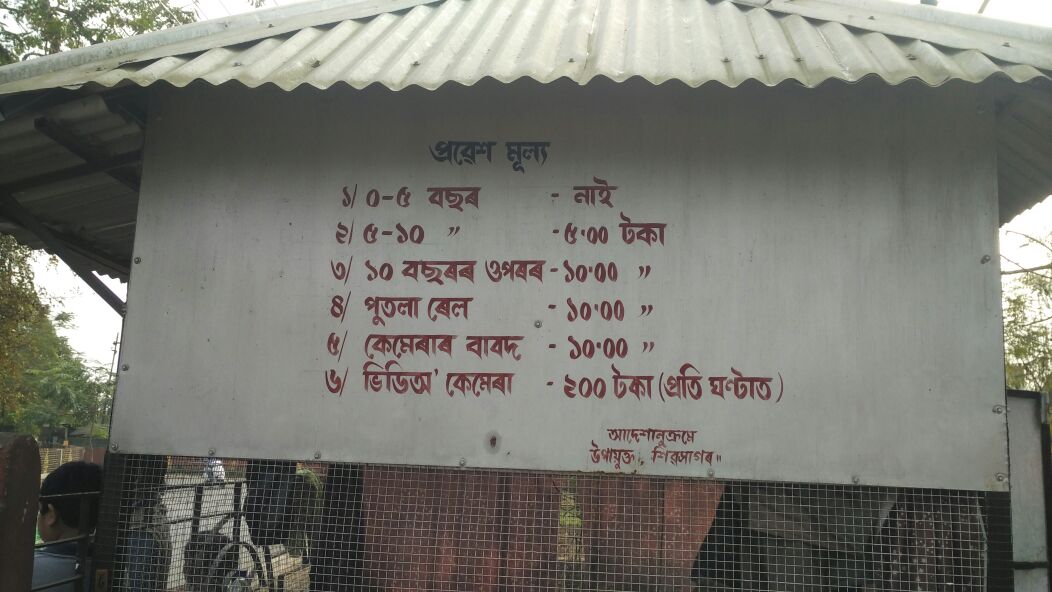 প্ৰৱেশ মূল্য
১/ ০-৫ বছৰ - নাই
২/ ৫-১০ " - ৫·০০ টকা
৩/ ১০ বছৰৰ ওপৰৰ - ১০·০০ "
৪/ পুতলা ৰেল - ১০·০০ "
৫/ কেমেৰাৰ বাবদ - ১০·০০ "
৬/ ভিডিঅ' কেমেৰা - ২০০ টকা (প্ৰতি ঘণ্টাত)
আদেশানুক্ৰমে
উপায়ুক্ত, শিৱসাগৰ॥